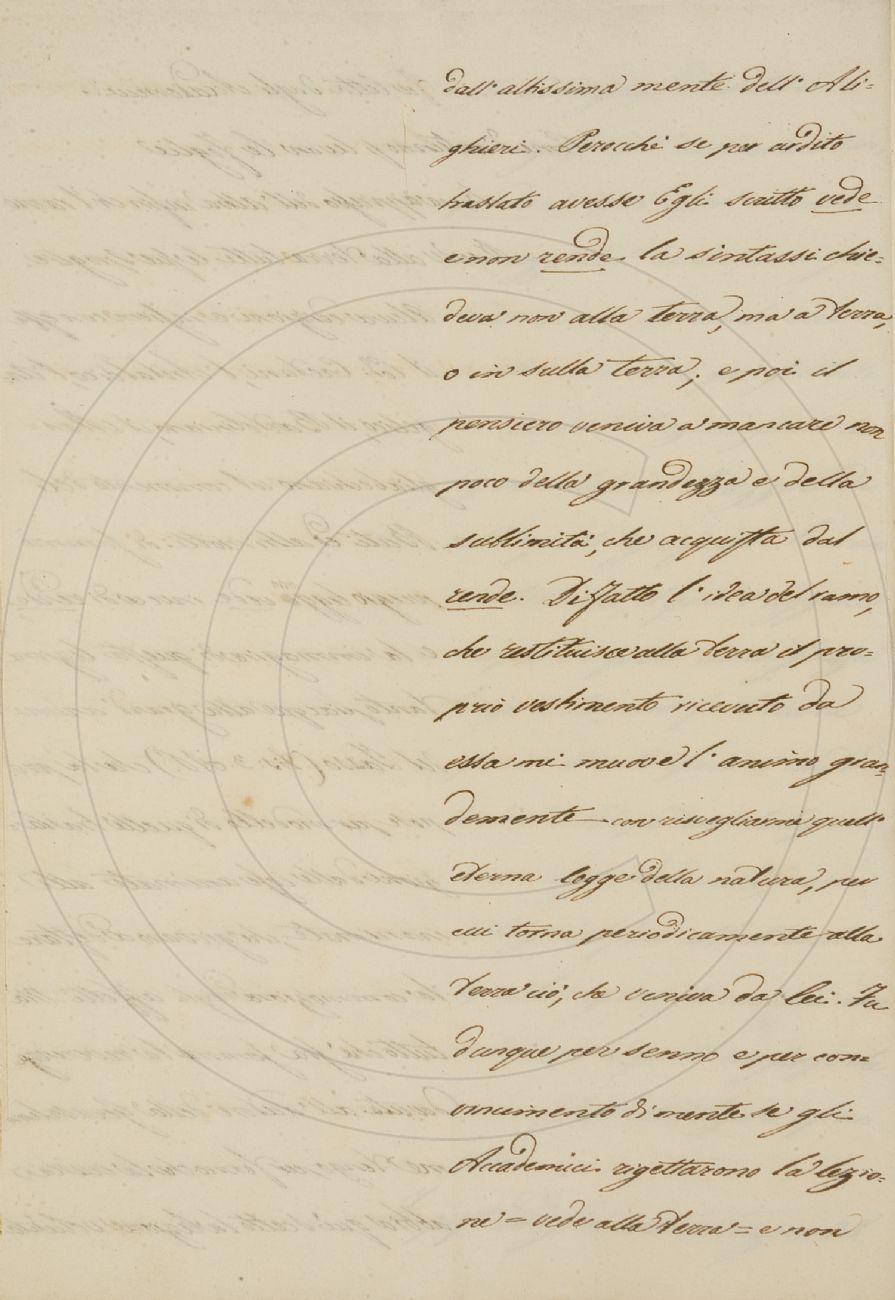 dall'altissima mente dell'Ali=
ghieri. Perocchè se per ardito
traslato avesse Egli scritto vede
e non rende la sintassi chie=
deva non alla terra, ma a terra,
o in sulla terra; e poi il
pensiero veniva a mancare non
poco della grandezza e della
sublimità, che acquista dal
rende. Di fatto l'idea del ramo,
che restituisce alla terra il pro=
prio vestimento ricevuto da
essa mi muove l'animo gran=
demente con risvegliarmi quell'
eterna legge della natura, per
cui torna periodicamente alla
terra ciò, che veniva da lei. Fu
dunque per senno e per con=
vincimento di mente se gli
Accademici rigettarono la lezio=
ne = vede alla terra = e non